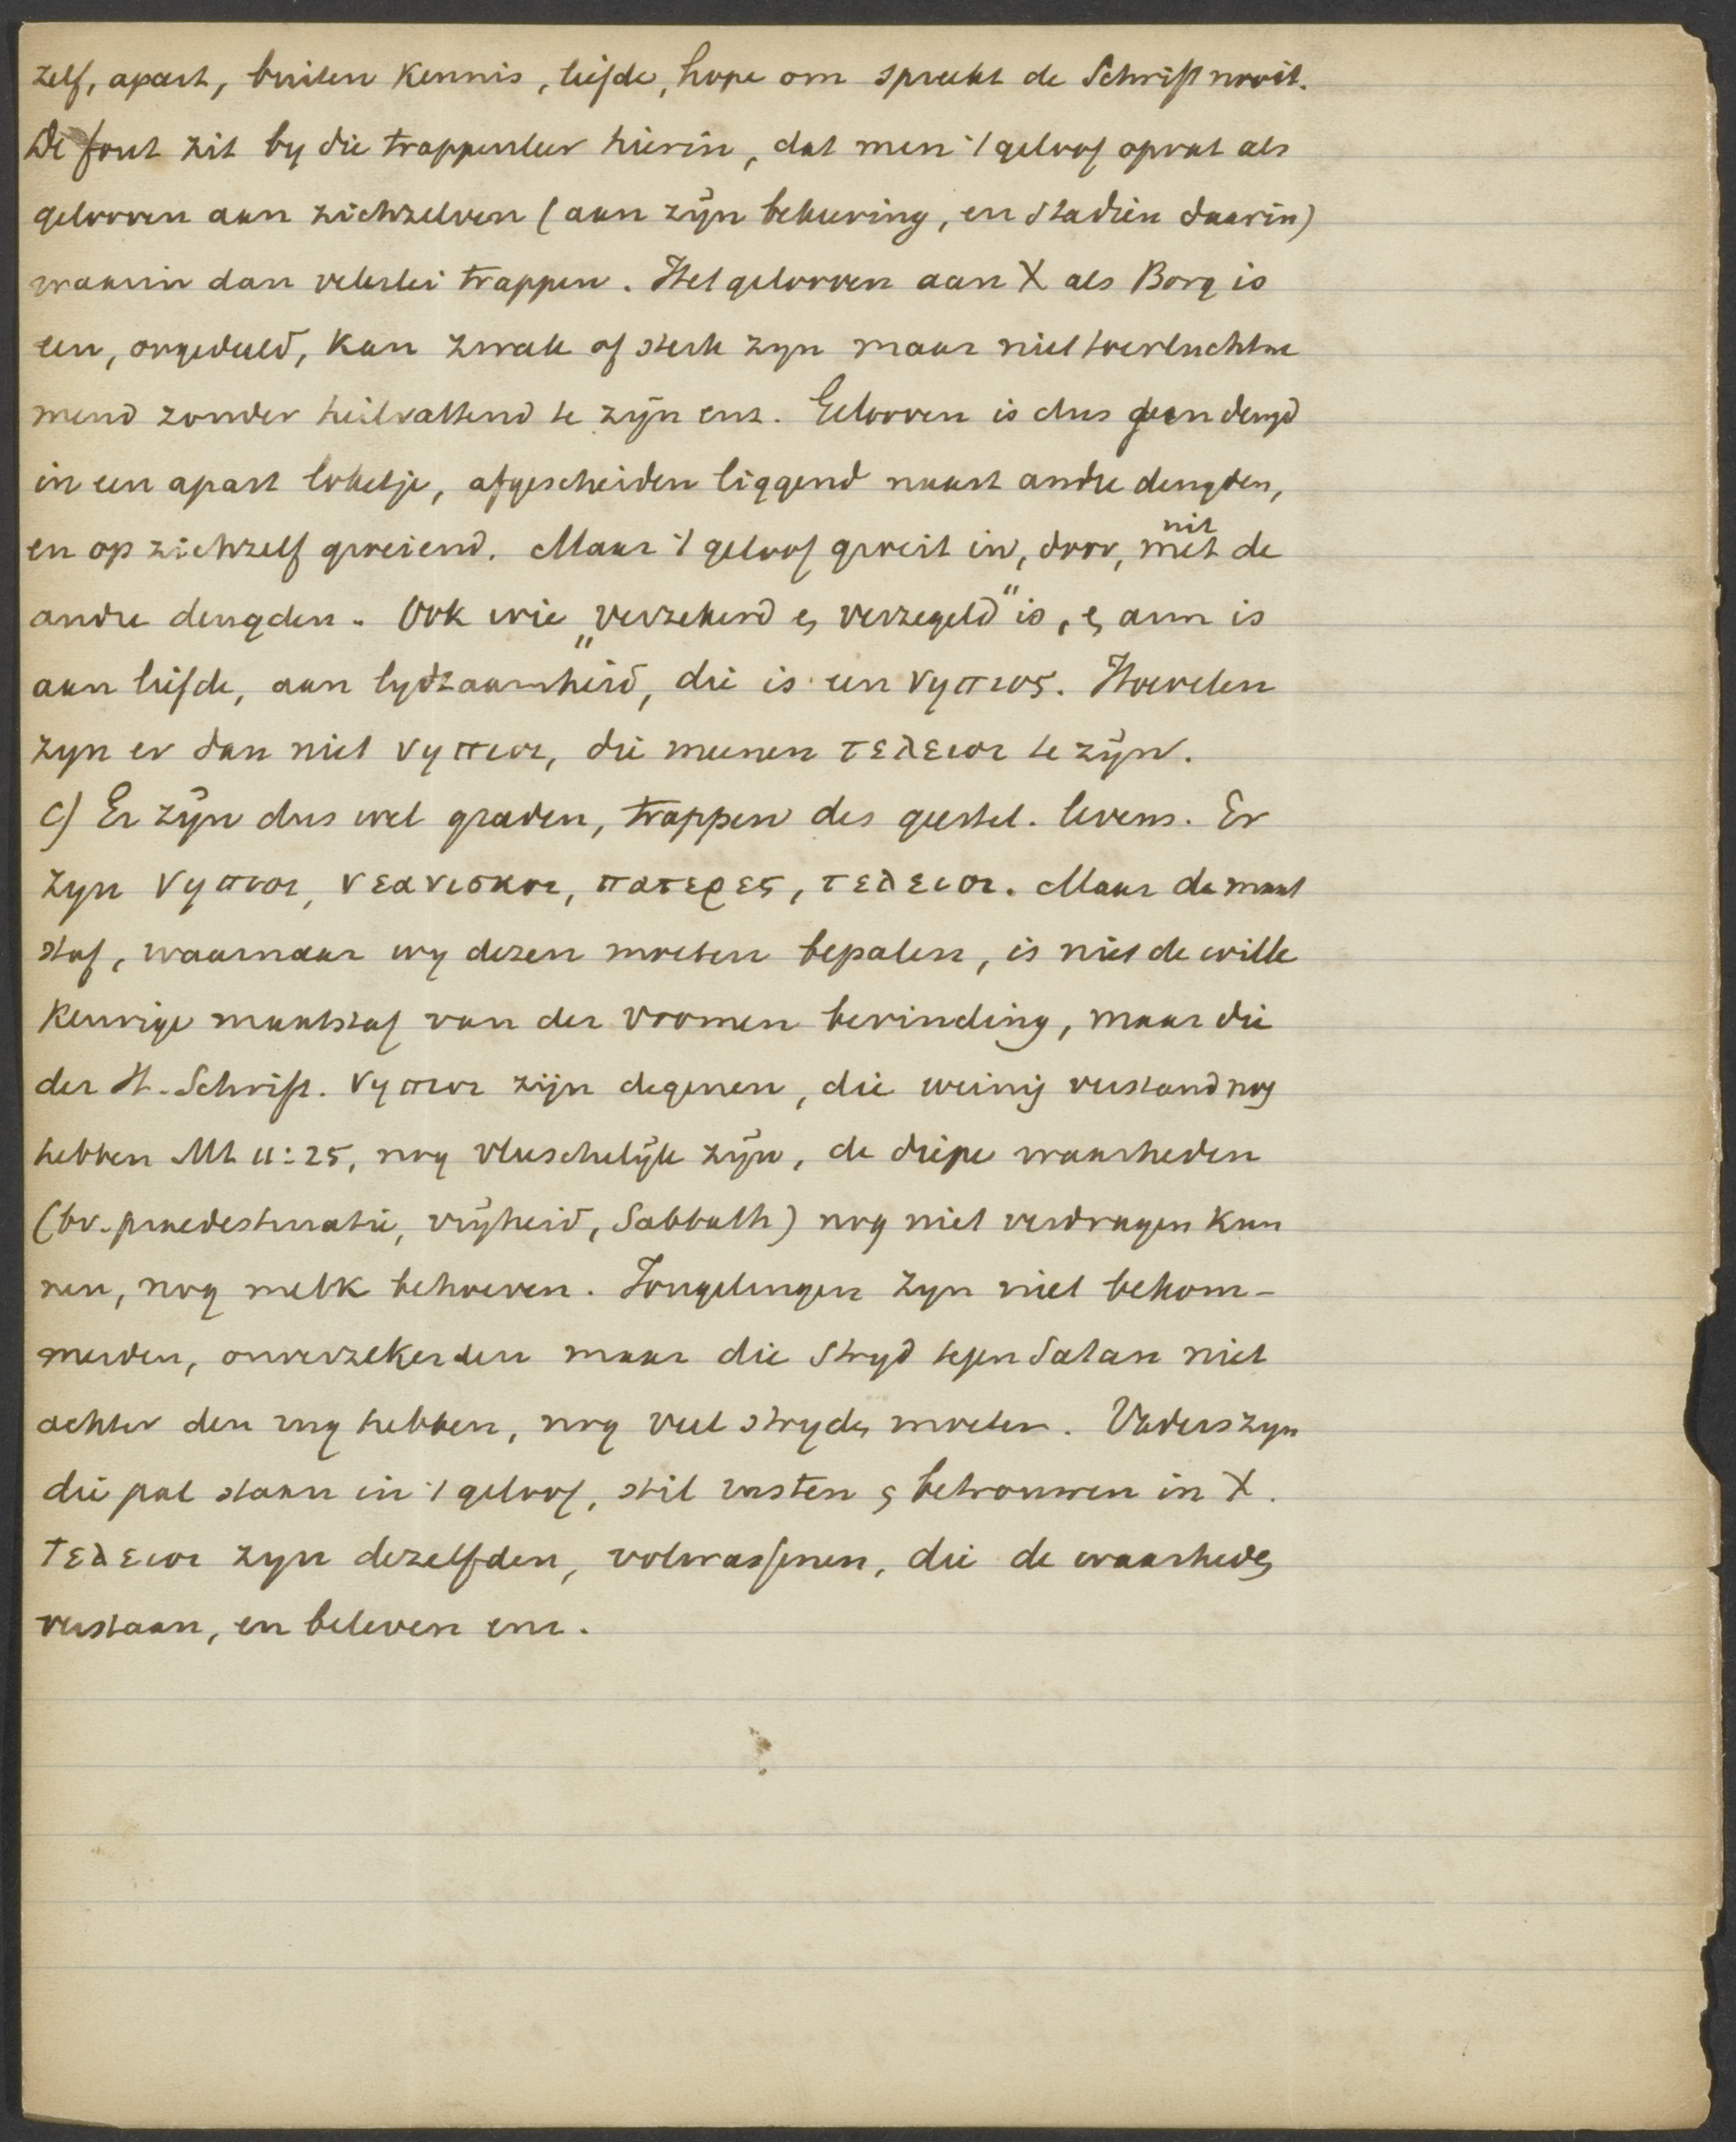 zelf, apart, buiten kennis, liefde, hope om spreekt de Schrift nooit.
De fout zit by die trappenleer hierin, dat men 't geloof opvat als
gelooven aan zichzelven (aan zijn bekeering, en stadiën daarin)
waarin dan velerlei trappen. Het gelooven aan X als Borg is
een, ongedeeld, kan zwak of sterk zyn maar niet toevluchtne
mend zonder heilvattend te zijn enz. Gelooven is dus geen deugd
in een apart loketje, afgescheiden liggend naast andre deugden,
en op zichzelf groeiend. Maar 't geloof groeit in, door, met uit de
andre deugden. Ook wie „verzekerd en verzegeld" is, en arm is
aan liefde, aan lydzaamheid, die is een νηπιος. Hoevelen
zyn er dan niet νηπιοι, die meenen τελειοι te zijn.
c) Er zijn dus wel graden, trappen des geestel. levens. Er
zyn νηπιοι, νεανισκοι, πατερες, τελειοι. Maar de maat
staf, waarnaar wy dezen moeten bepalen, is niet de wille
keurige maatstaf van der vromen bevinding, maar die
der H. Schrift. νηπιοι zijn degenen, die weinig verstand nog
hebben Mt 11:25, nog vleeschelijk zijn, de diepe waarheden
(bv. praedestinatie, vrijheid, Sabbath) nog niet verdragen kun
nen, nog melk behoeven. Jongelingen zyn niet bekom-
merden, onverzekerden maar die stryd tegen Satan niet
achter den rug hebben, nog veel stryden moeten. Vaders zyn
die pal staan in 't geloof, stil rusten en betrouwen in X.
Τελειοι zyn dezelfden, volwassenen, die de waarheden
verstaan, en beleven enz.